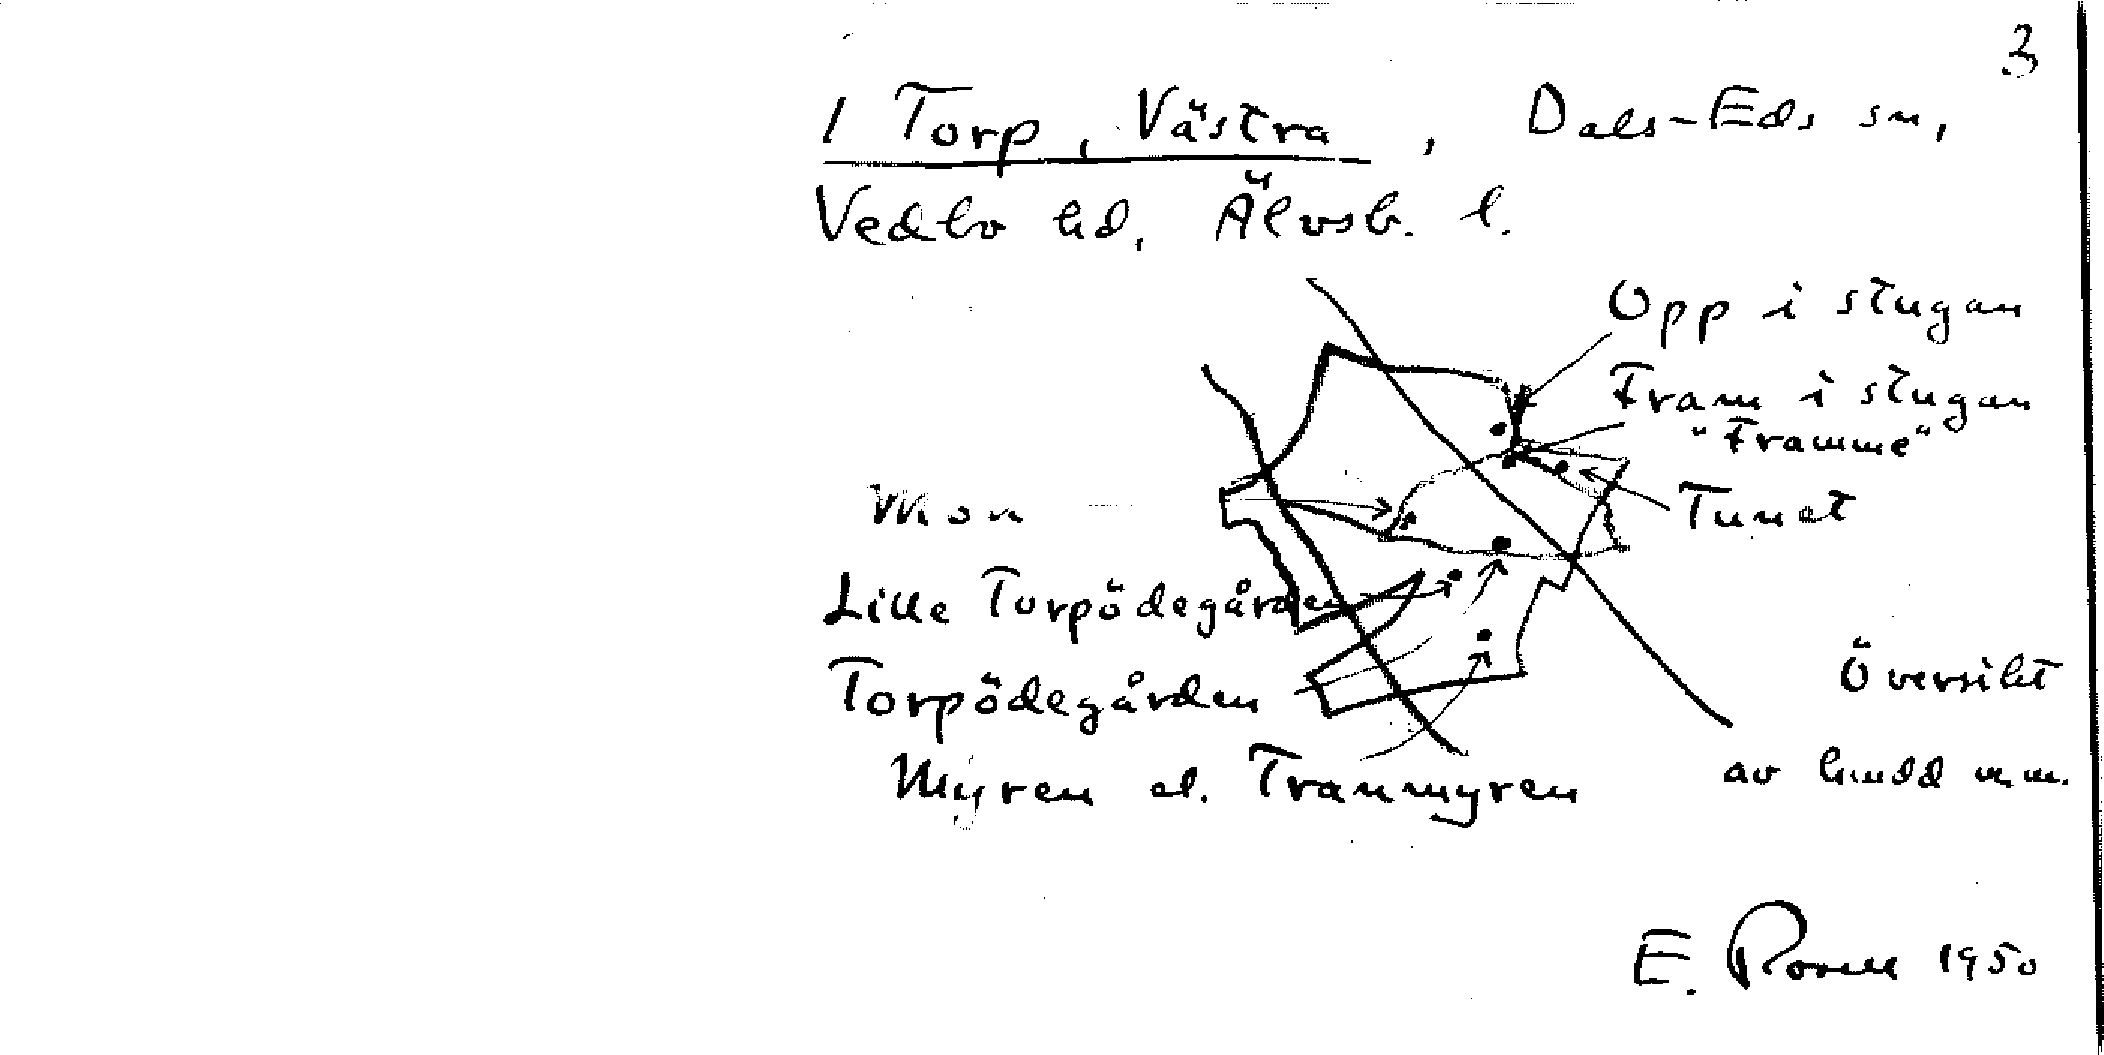 3
1 Torp, Västra, Dals-Eds sn,
Vedbo hd, Älvsb. l.
Opp i stugan
Fram i stugan
"Framme"
Mon
Tunet
Lille Torpödegården
Torpödegården
Översikt
Myren el. Tranmyren
av m.m.
E. 1950